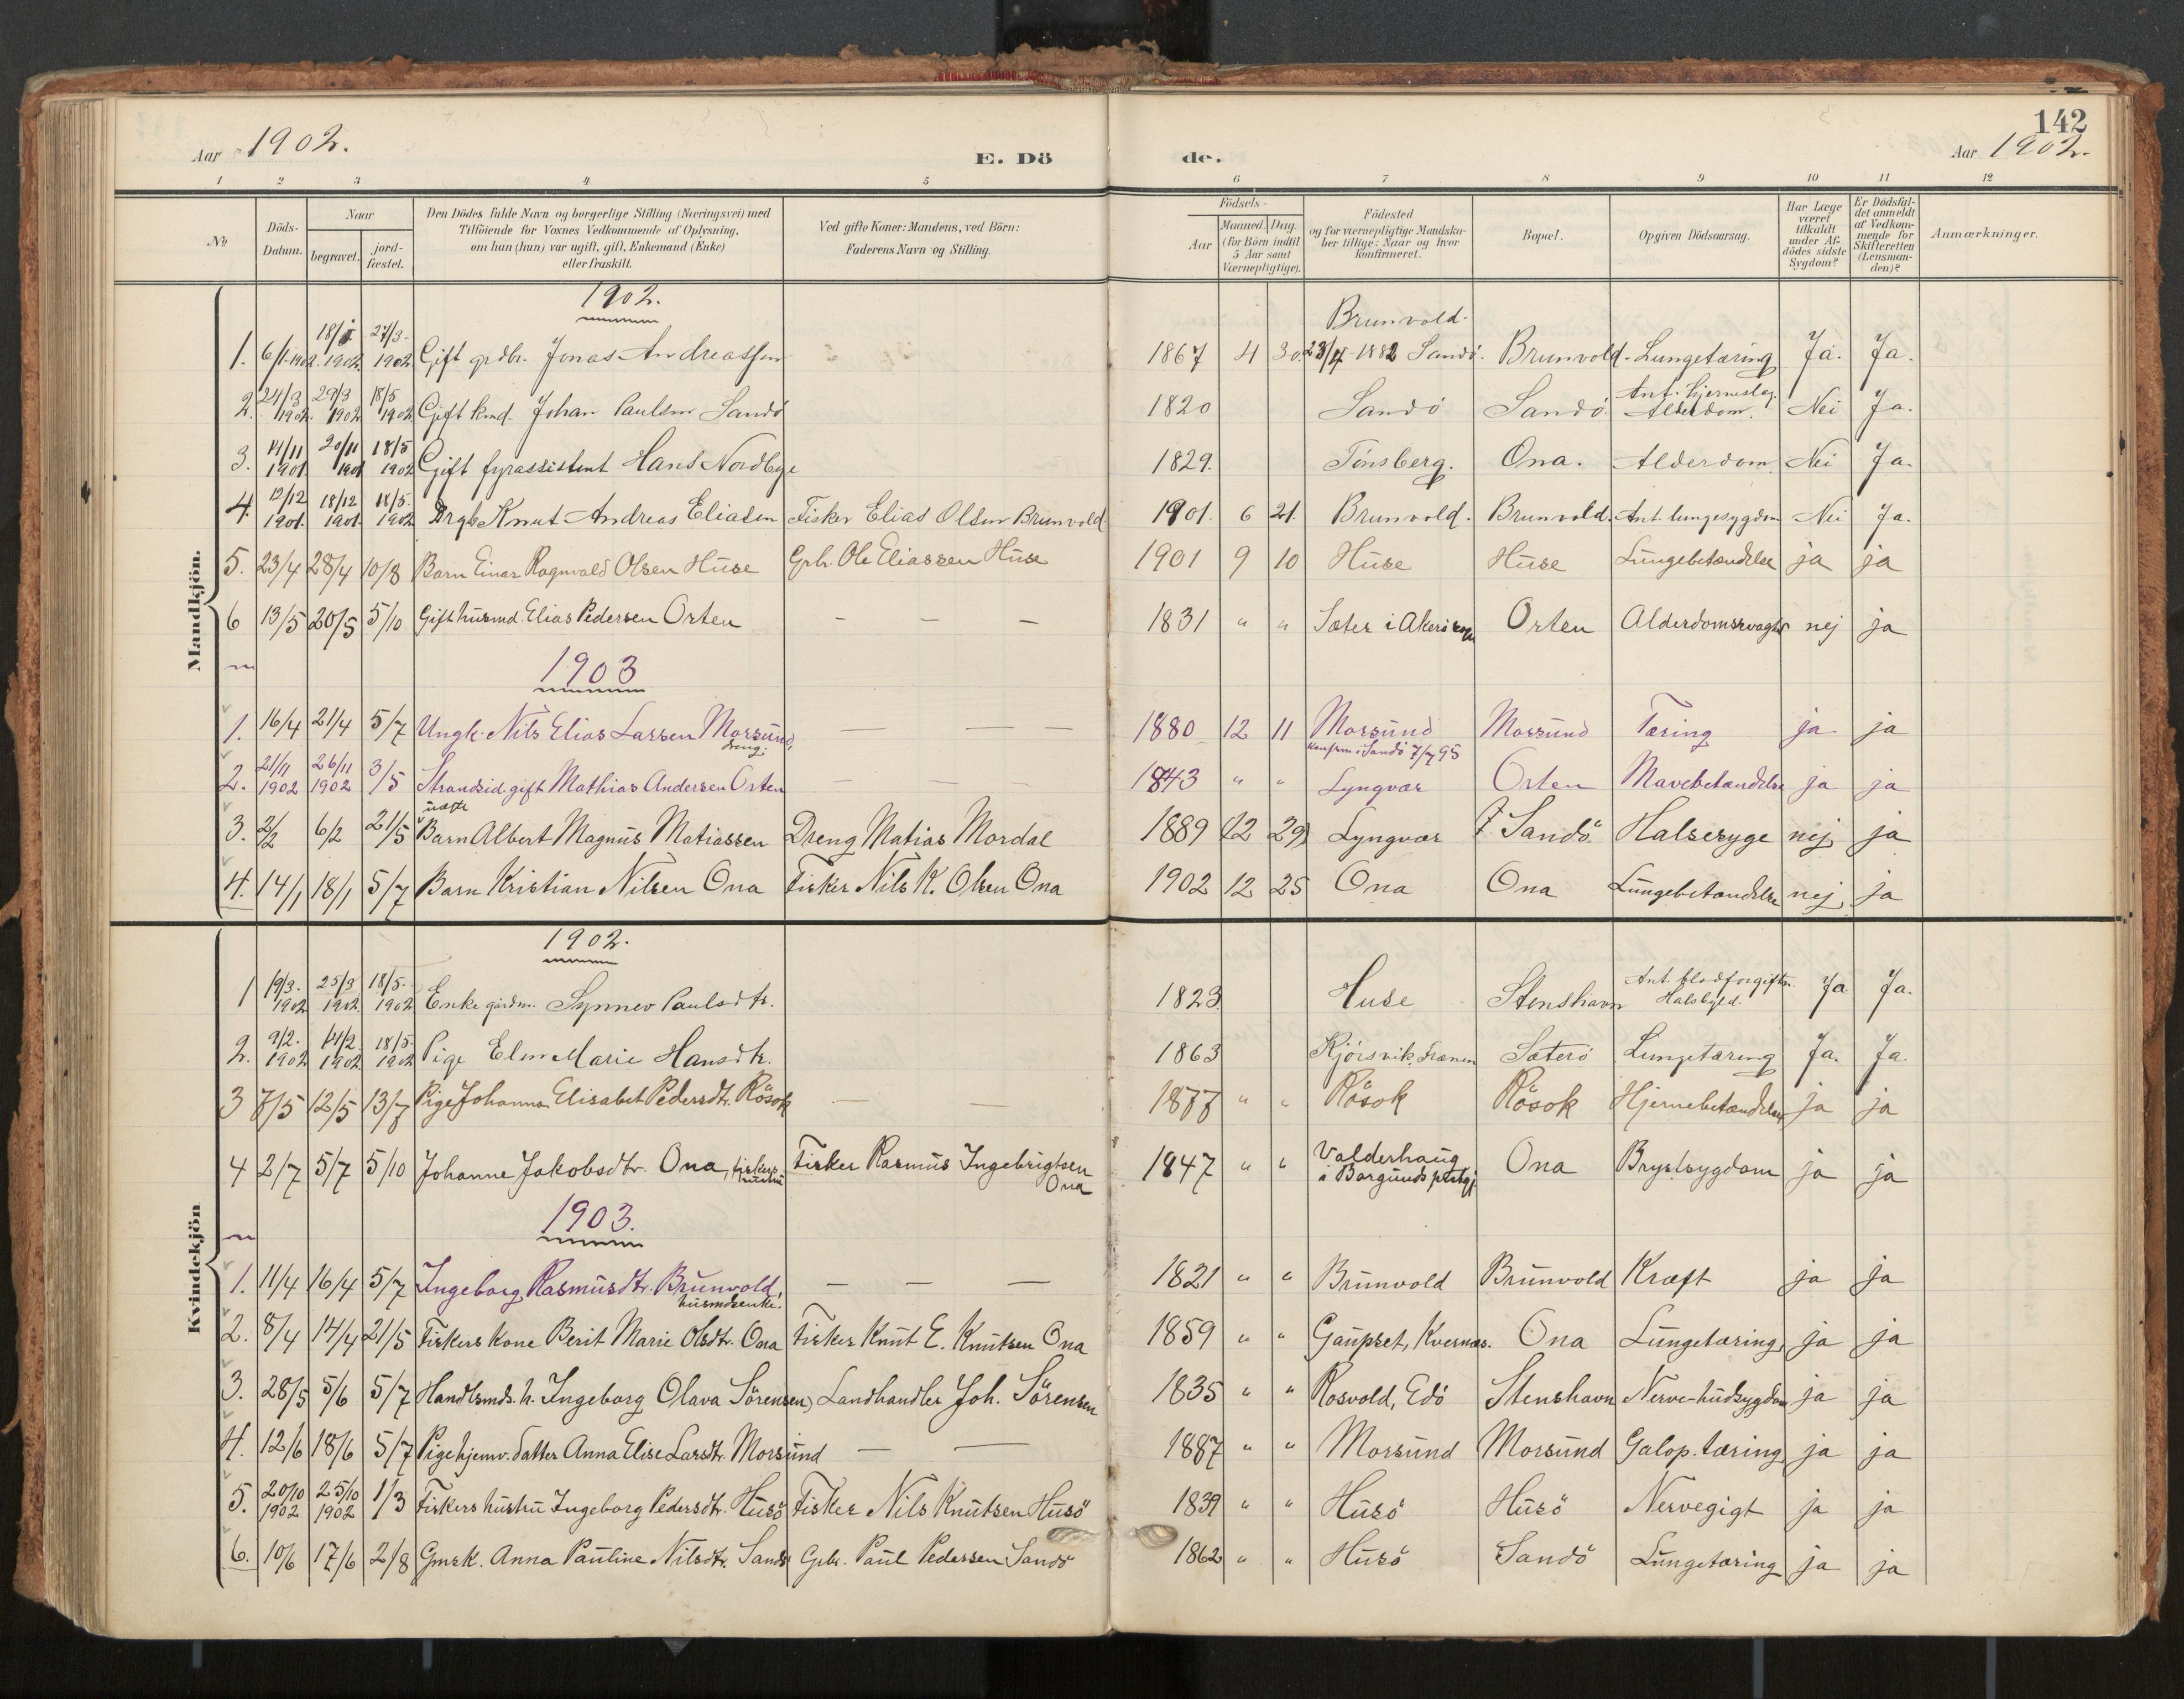 142
Aar 1902.
E. Dö
de.
Aar 1902.
1 2 3 4 5 6 7 8 9 10 11 12
No
Döds-
Datum.
Naar
begravet.
jord-
fæstet.
Den Dödes fulde Navn og borgerlige Stilling (Næringsvei) med
Tilföiende for Voxnes Vedkommende af Oplysning,
om han (hun) var ugift, gift, Enkemand (Enke)
eller fraskilt.
Ved gifte Koner: Mandens, ved Börn:
Faderens Navn og Stilling.
Födsels-
Aar
Maaned. Dag.
(for Börn indtil
5 Aar samt
Værnepligtige).
Födested
og for værnepligtige Mandska-
ber tillige: Naar og hvor
konfirmeret.
Bopæl.
Opgiven Dödsaarsag.
Har Læge
været
tilkaldt
under Af-
dödes sidste
Sygdom?
Er Dödsfal-
det anmeldt
af Vedkom-
mende for
Skifteretten
(Lensman-
den)?
Anmærkninger.
Mandkjön.
1902.
1. 6/1 1902. 18/1 1902. 27/3 1902 Gift grdbr. Jonas Andreassen 1867 4 30. Brunvold. 23/4 1882 Sandö. Brunvold. Lungetæring Ja. Ja.
2. 24/3 1902. 29/3 1902 18/5 1902 Gift kmd. Johan Paulsen Sandö 1820 Sandö Sandö. Ant. hjerneslag. Alderdom. Nei Ja.
3. 14/11 1901 20/11 1901 18/5 1902 Gift fyrassistent Hans Nordbye 1829. Tönsberg. Ona. Alderdom. Nei Ja.
4. 12/12 1901. 18/12 1901 18/5. 1902 Drgb. Knut Andreas Eliasen Fisker Elias Olsen Brunvold 1901. 6 21. Brunvold. Brunvold. Ant. lungesygdom Nei Ja.
5. 23/4 28/4 10/8 Barn Einar Ragnvald Olsen Huse Grbr. Ole Eliassen Huse 1901 9 10 Huse Huse Lungebetændelse ja ja
6 13/5 20/5 5/10 Gift husmd. Elias Pedersen Orten — — — 1831 " " Sæter i Akerö Orten Alderdomssvaghd nej ja
1903
1. 16/4 21/4 5/7 Ungk. Nils Elias Larsen Morsund, dreng. — — — 1880 12 11 Morsund konfirm i Sandö 7/7 95 Morsund Tæring ja ja
2. 21/11 1902 26/11 1902 3/5 Strandsid. gift Mathias Andersen Orten — — — 1843 " " Lyngvær Orten Mavebetændelse ja ja
3. 2/2 6/2 21/5 uægte Barn Albert Magnus Matiassen Dreng Matias Mordal 1889 12 29 Lyngvær Sandö. Halsesyge nej ja
4. 14/1 18/1 5/7 Barn Kristian Nilsen Ona Fisker Nils K. Olsen Ona 1902 12 25 Ona Ona Lungebetændelse nej, ja
Kvindekjön
1902.
1 19/3. 1902 25/3 1902. 18/5- 1902 Enke gårdm. Synnev Paulsdtr. 1823 Huse Stenshavn Ant. blodforgiftn. Halsbyld. Ja Ja.
2. 9/2. 1902 14/2. 1902 18/5- 1902 Pige Elen Marie Hansdtr. 1863 Kjörsvik, Frænen Sæterö Lungetæring Ja. Ja.
3 7/5 12/5 13/7 Pige Johanna Elisabet Pedersdtr. Rösok — — 1877 " " Rösok Rösok Hjernebetændelse ja ja
4 2/7 5/7 5/10 Johanne Jakobsdtr. Ona, fiskers hustru Fisker Rasmus Ingebrigtsen Ona 1847 " " Valderhaug i Borgunds prstgj. Ona Brystsygdom ja ja
1903.
1. 11/4 16/4 5/7 Ingeborg Rasmusdtr. Brunvold, husmdsenke. — — — 1821 " " Brunvold Brunvold Kræft ja ja
2. 8/4 14/4 21/5 Fiskers kone Berit Marie Olsdtr. Ona Fisker Knut E. Knutsen Ona 1859 " " Gaupset, Kvernæs. Ona Lungetæring, ja ja
3. 28/5 5/6 5/7 Handlsmds. h. Ingeborg Olava Sörensen, Landhandler Joh. Sörensen 1835 " " Rosvold, Edö Stenshavn Nerve-hudsygdom ja ja
4. 12/6 18/6 5/7 Pige hjemv. datter Anna Elise Larsdtr. Morsund — — 1887 " " Morsund Morsund Galop. tæring ja ja
5. 20/10 1902 25/10 1902 1/3 Fiskers hustru Ingeborg Pedersdtr. Husö Fisker Nils Knutsen Husö 1839 " " Husö Husö Nervegigt ja ja
6. 10/6 17/6 2/8 Gmsk. Anna Pauline Nilsdtr. Sandö Grbr. Paul Pedersen Sandö 1862 " " Husö Sandö Lungetæring ja ja